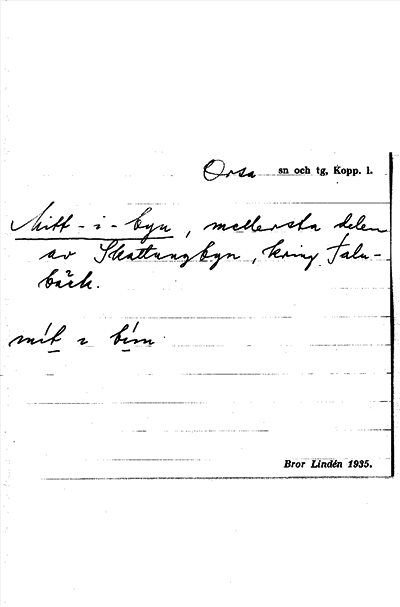 Orsa sn och tg, Kopp. l.
Mitt-i-byn, mellersta delen
av Skattungbyn, kring Falu-
bäck.
mit i bím
Bror Lindén 1935.